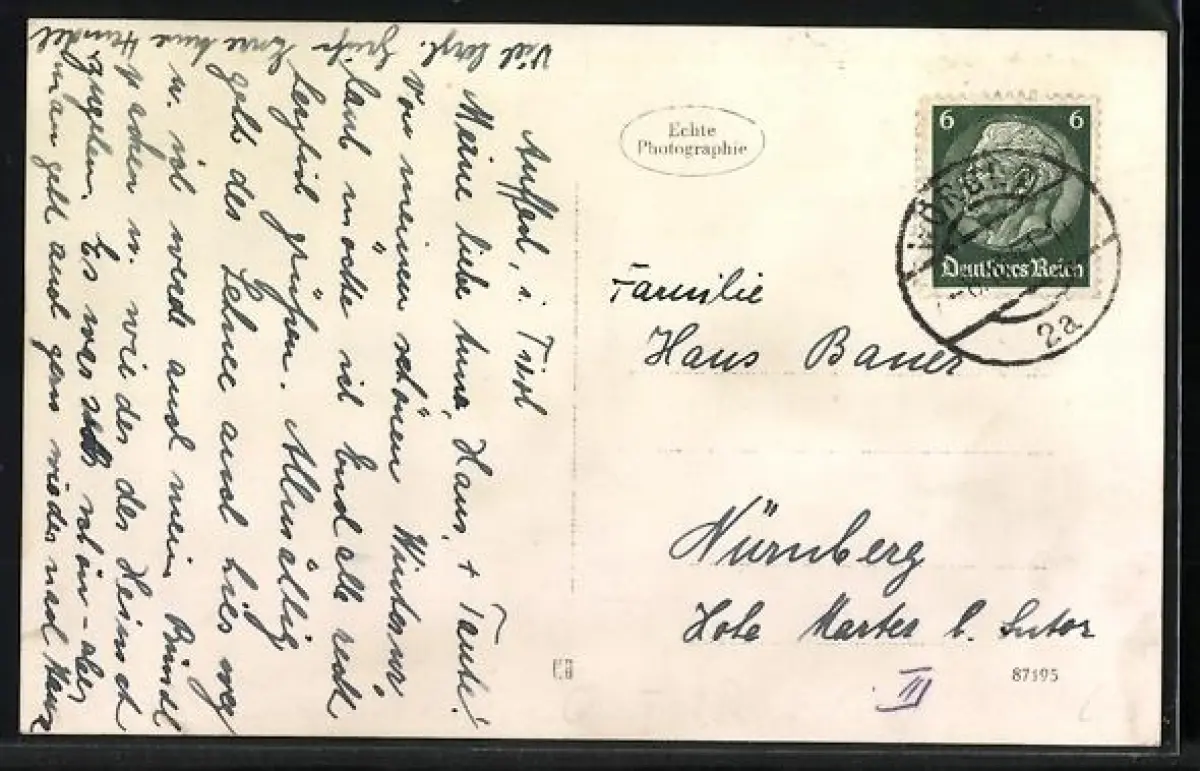 Auffach, i. Tirol
Meine liebe Anna, Hans, + Tante!
Von meinem schönen Winterur
laub möchte ich Euch alle recht
herzlich grüßen. Allmählig
geht der Schnee auch hier weg
u. ich werde auch mein Bündl
packen u. wieder der Heimat
zugehen. Es war sehr schön – aber
man geht auch gern wieder nach Haus
Viel herzl. Grüße Eure Anna
Echte
Photographie
6 6
Deutsches Reich
WÖRGL
2a
Familie
Hans Bauer
Nürnberg
Hohe Marter b. Sutor
III
87195